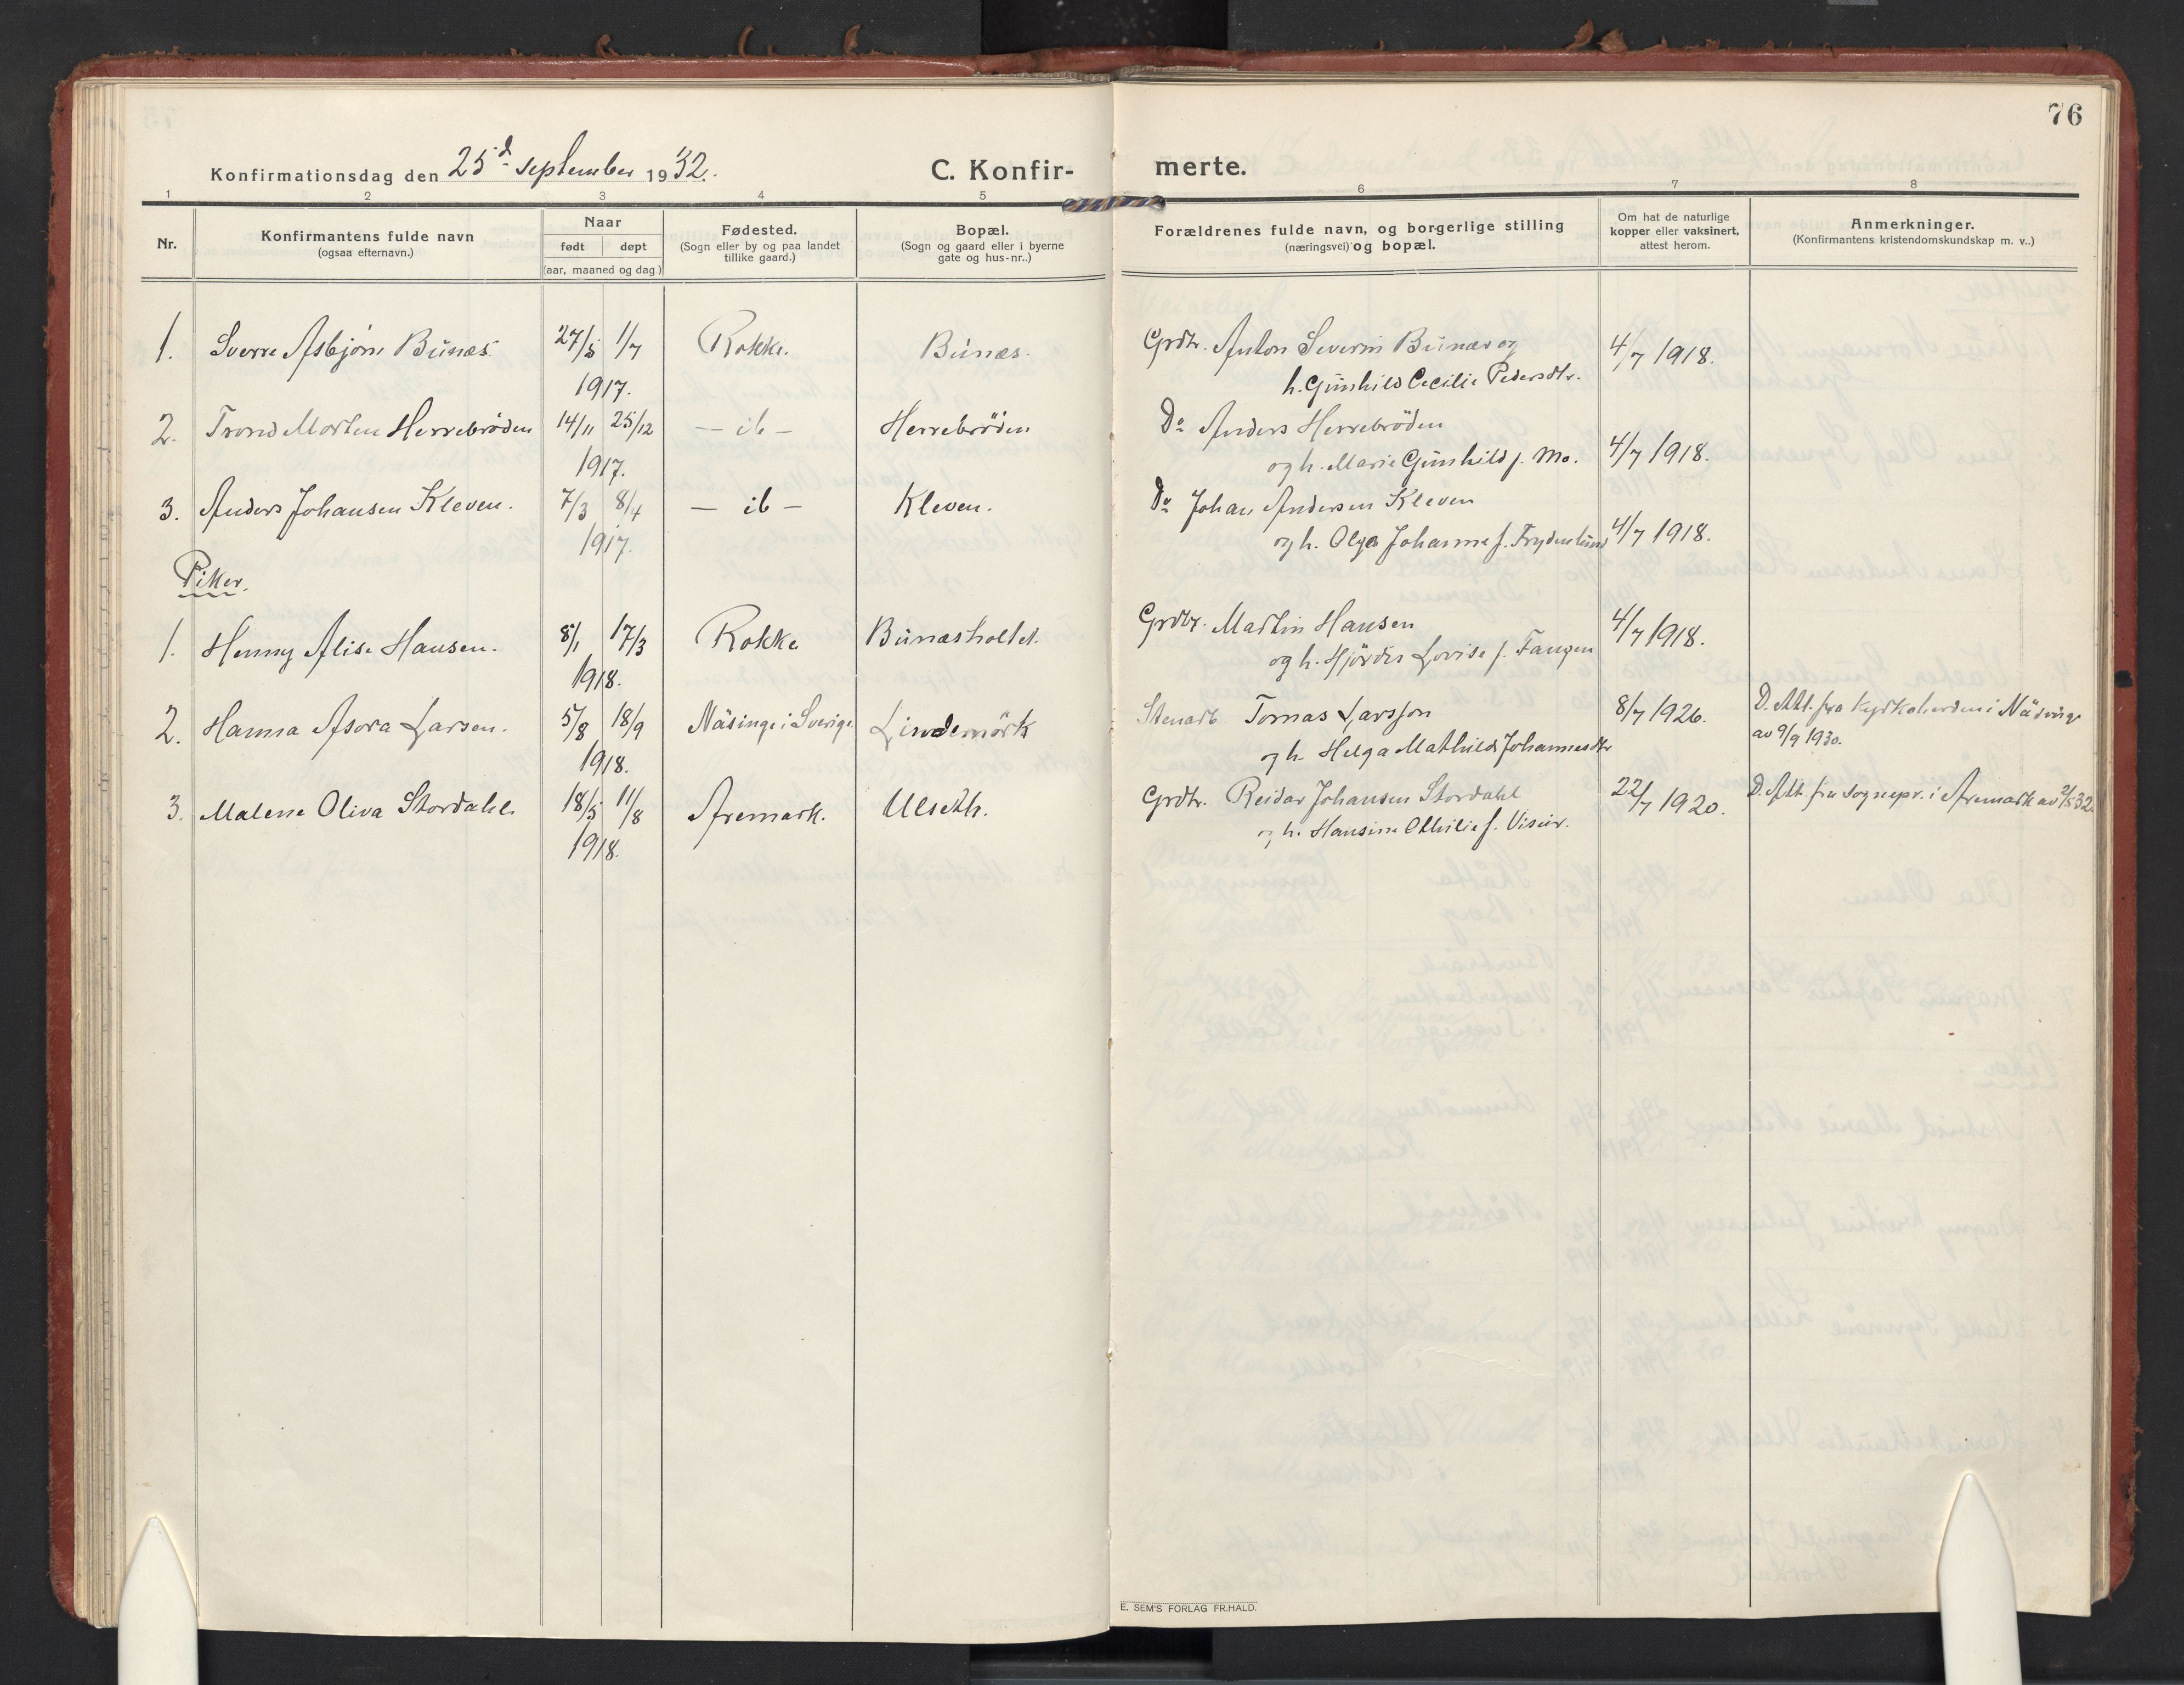 76
Konfirmationsdag den 25d september 1932.
C. Konfir- merte.
1 2 3 4 5 6 7 8
Nr.
Konfirmantens fulde navn
(ogsaa efternavn.)
Naar
født døpt
(aar, maaned og dag.)
Fødested.
(Sogn eller by og paa landet
tillike gaard.)
Bopæl.
(Sogn og gaard eller i byerne
gate og hus-nr..)
Forældrenes fulde navn, og borgerlige stilling
(næringsvei) og bopæl.
Om hat de naturlige
kopper eller vaksinert,
attest herom.
Anmerkninger.
(Konfirmantens kristendomskundskap m. v..)
1. Sverre Asbjørn Bunæs. 27/5 1/7 Rokke. Bunæs. Grdbr. Anton Severin Bunæs og 4/7 1918.
1917. h. Gunhild Cecilie Pedersdtr.
2. Trond Morten Herrebrøden 14/11 25/12 — ib — Herrebrøden Do Anders Herrebrøden
1917. og h. Marie Gunhild f. Mo. 4/7 1918.
3. Anders Johansen Kleven. 7/3 8/4 — ib — Kleven. Do Johan Andersen Kleven
1917. og h. Olga Johanne f. Frydenlund 4/7 1918.
Piker.
1. Henny Alise Hansen. 8/1 17/3 Rokke Bunæsholtet. Grdbr. Martin Hansen 4/7 1918.
1918. og h. Hjørdis Lovise f. Tangen
2. Hanna Asora Larsen. 5/8 18/9 Näsinge i Sverige. Lindemørk Stenarb. Tomas Larsson 8/7 1926. D. Att. fra kyrkoherden i Näsinge
1918. og h. Helga Mathilde Johannesdtr av 9/9 1930.
3. Malene Oliva Stordahl. 18/5 11/8 Aremark. Ulseth. Grdbr. Reidar Johansen Stordahl 22/7 1920. D. Att. fra sognepr. i Aremark av 2/5 32.
1918. og h. Hansine Othilie f.
E. SEM'S FORLAG FR.HALD.